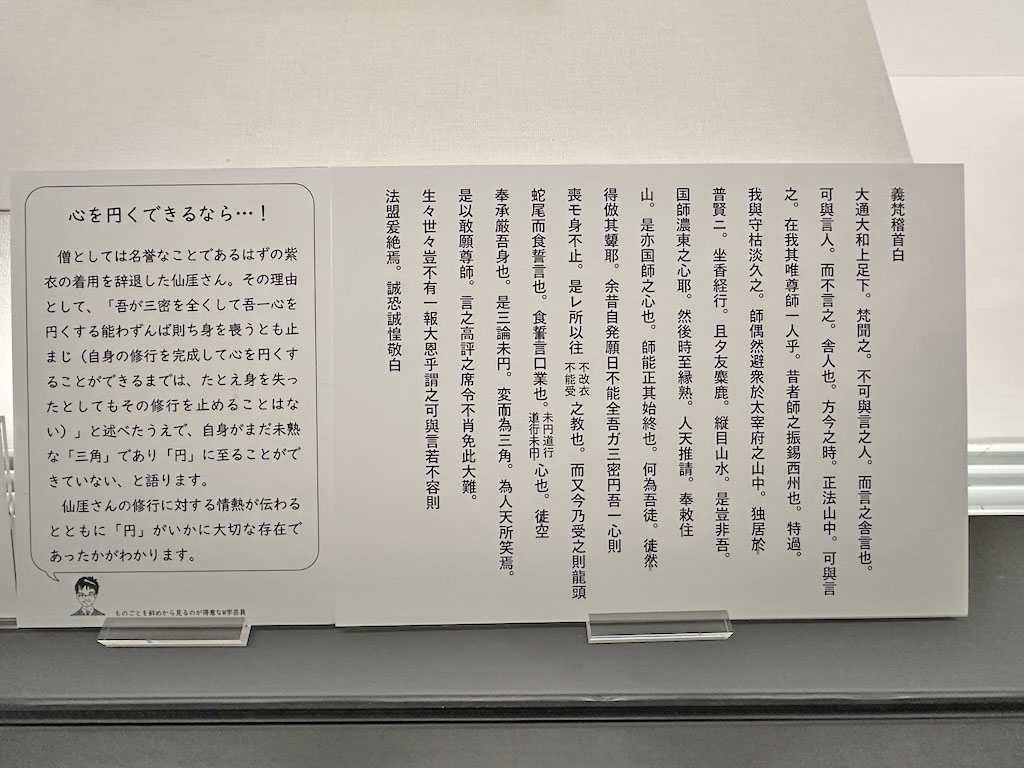 心を円くできるなら…！
　僧としては名誉なことであるはずの紫
衣の着用を辞退した仙厓さん。その理由
として、「吾が三密を全くして吾一心を
円くする能わずんば則ち身を喪うとも止
まじ（自身の修行を完成して心を円くす
ることができるまでは、たとえ身を失っ
たとしてもその修行を止めることはな
い）」と述べたうえで、自身がまだ未熟
な「三角」であり「円」に至ることがで
きていない、と語ります。
　仙厓さんの修行に対する情熱が伝わる
とともに「円」がいかに大切な存在で
あったかがわかります。
ものごとを斜めから見るのが得意な学芸員
義梵稽首白
大通大和上足下。梵聞之。不可與言之人。而言之舎言也。
可與言人。而不言之。舎人也。方今之時。正法山中。可與言
之。在我其唯尊師一人乎。昔者師之振錫西州也。特過。
我與守枯淡久之。師偶然避衆於太宰府之山中。独居於
普賢ニ。坐香経行。且夕友麋鹿。縦目山水。是豈非吾。
国師濃東之心耶。然後時至縁熟。人天推請。奉敕住
山。是亦国師之心也。師能正其始終也。何為吾徒。徒然
得倣其顰耶。余昔自発願日不能全吾ガ三密円吾一心則
喪モ身不止。是レ所以往 不改衣 不能受 之教也。而又今乃受之則龍頭
蛇尾而食誓言也。食誓言口業也。未円道行 道行未円 心也。徒空
奉承厳吾身也。是三論未円。変而為三角。為人天所笑焉。
是以敢願尊師。言之高評之席令不肖免此大難。
生々世々豈不有一報大恩乎謂之可與言若不容則
法盟爰絶焉。誠恐誠惶敬白